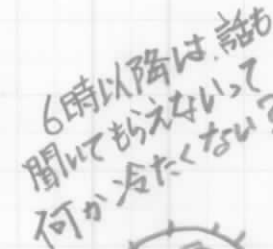 6時以降は、話も
聞いてもらえないって
何か冷たくない?